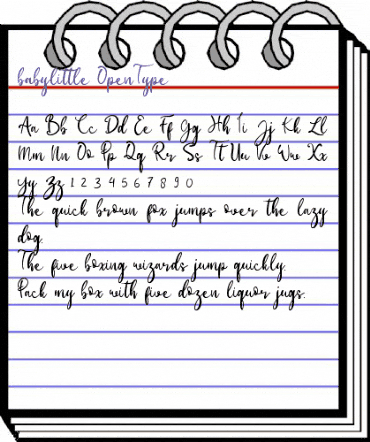 babylittle OpenType
Aa Bb Cc Dd Ee Ff Gg Hh Ii Jj Kk Ll
Mm Nn Oo Pp Qq Rr Ss Tt Uu Vv Ww Xx
Yy Zz 1 2 3 4 5 6 7 8 9 0
The quick brown fox jumps over the lazy
dog.
The five boxing wizards jump quickly.
Pack my box with five dozen liquor jugs.